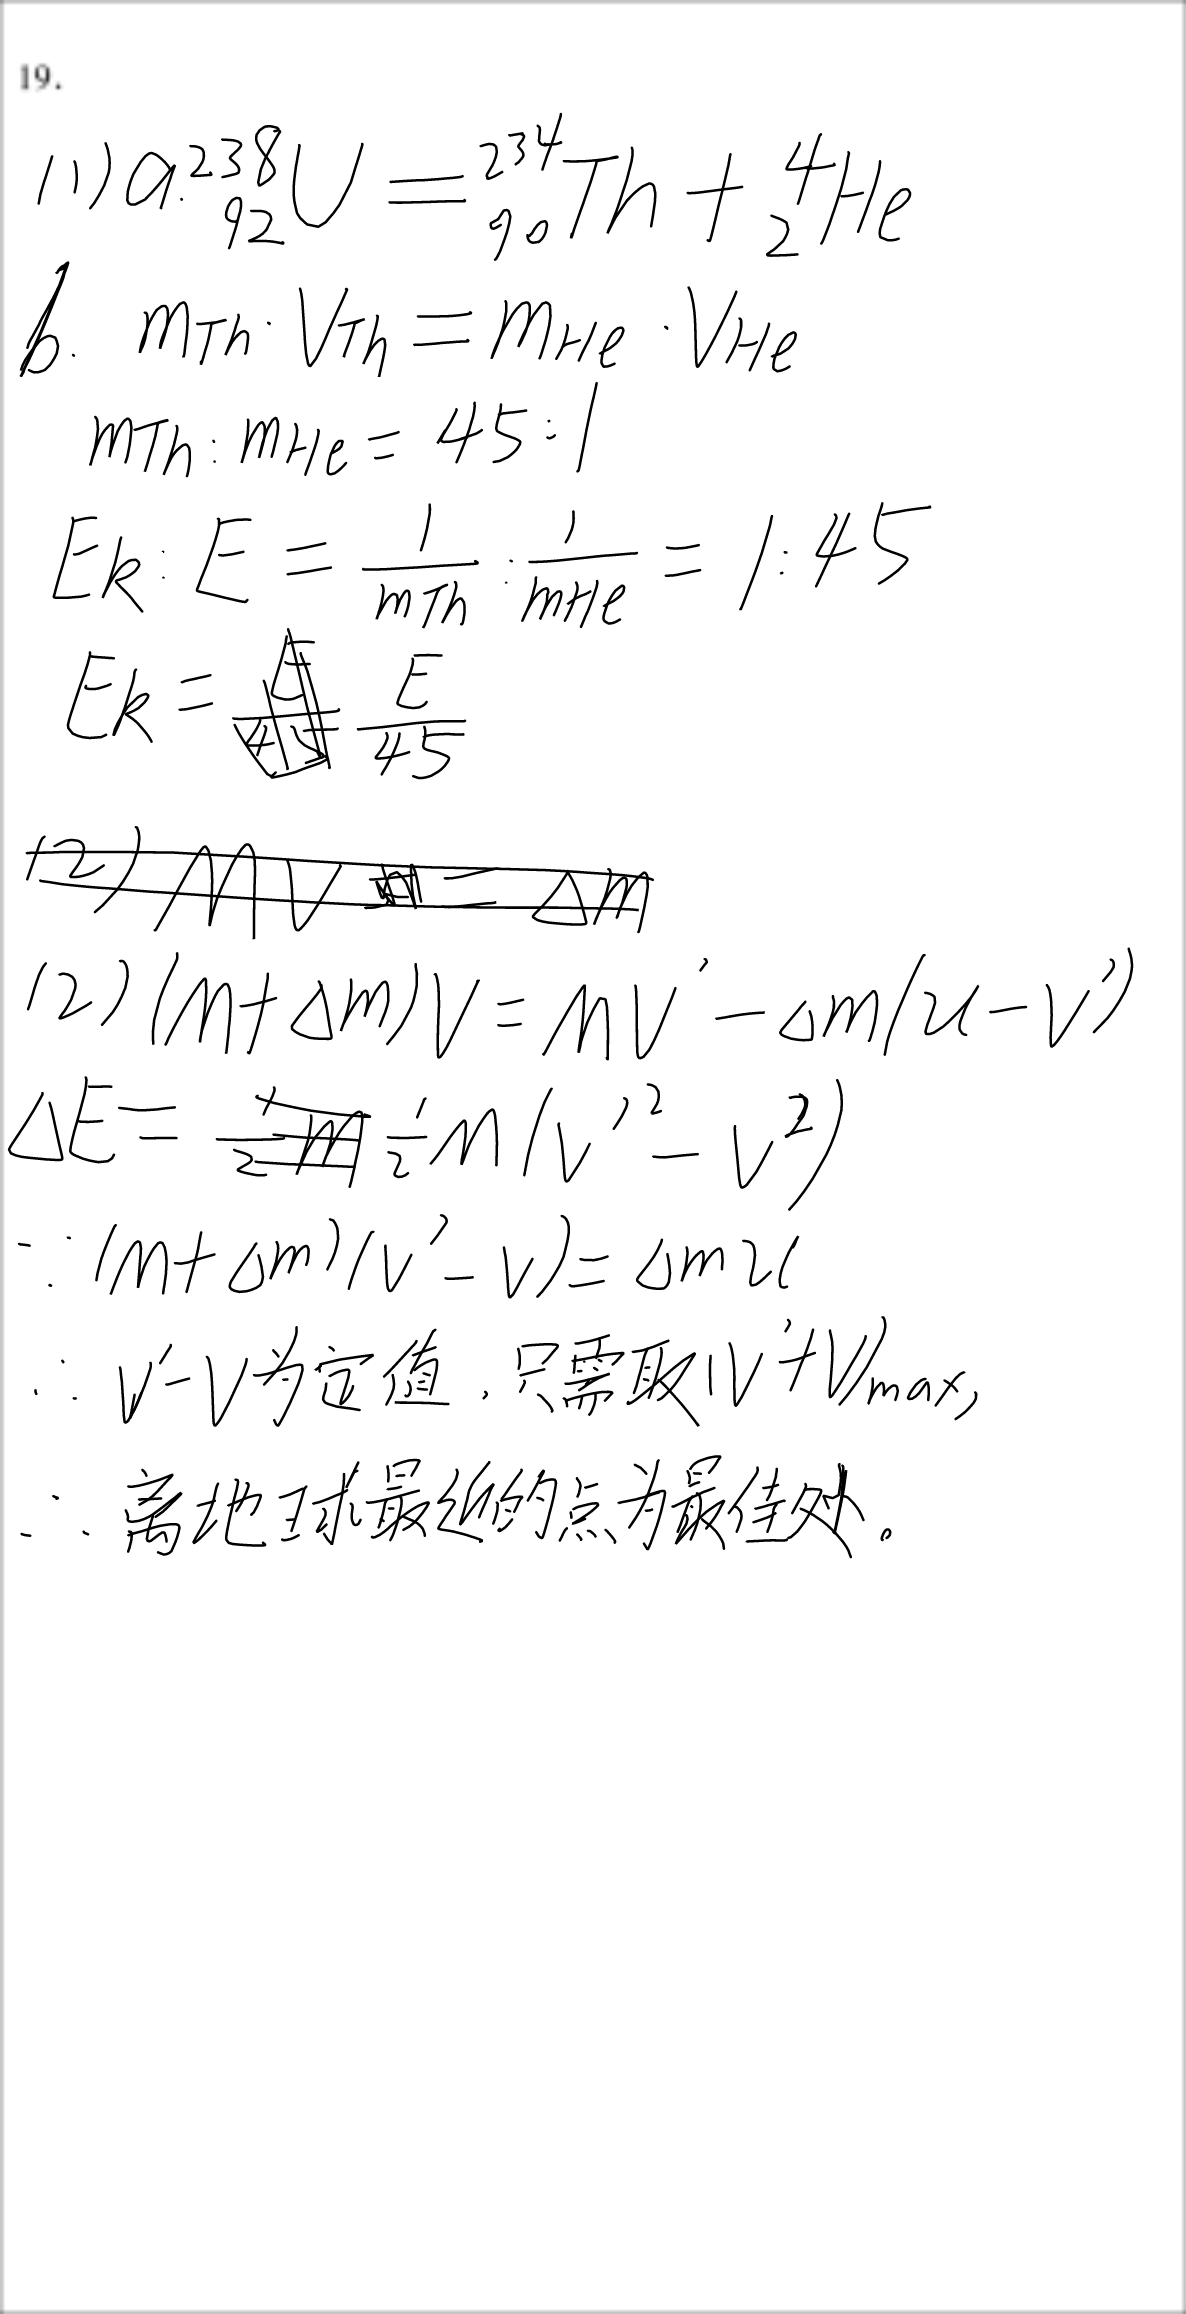 19.
(1) a. ²³⁸₉₂U = ²³⁴₉₀Th + ⁴₂He
b. mTh · VTh = mHe · VHe
mTh : mHe = 45 : 1
Ek : E = 1/mTh : 1/mHe = 1 : 45
Ek = E/45
(2) MV = Δm
(2) (M+Δm)V = MV′ - Δm(u-V′)
ΔE = 1/2 M(V′² - V²)
∵ (M+Δm)(V′-V) = Δmu
∴ V′-V为定值，只需取(V′+V)max,
∴ 离地球最近的点为最佳处。